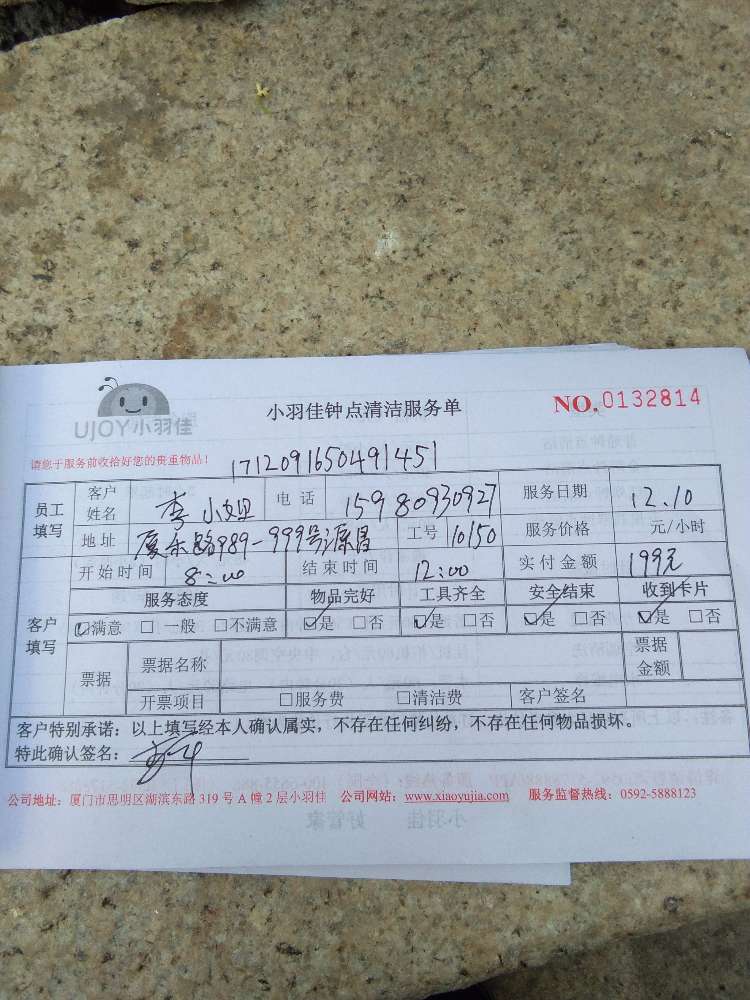 UJOY小羽佳
小羽佳钟点清洁服务单
NO.0132814
请您于服务前收拾好您的贵重物品!
1712091650491451
员工填写 客户姓名 李小姐 电话 15980930927 服务日期 12.10
地址 厦禾路989-999号源昌 工号 10150 服务价格 元/小时
开始时间 8:00 结束时间 12:00 实付金额 199元
客户填写 服务态度 物品完好 工具齐全 安全结束 收到卡片
☑满意 □一般 □不满意 ☑是 □否 ☑是 □否 ☑是 □否 ☑是 □否
票据 票据名称 票据金额
开票项目 □服务费 □清洁费 客户签名
客户特别承诺:以上填写经本人确认属实,不存在任何纠纷,不存在任何物品损坏。
特此确认签名:
公司地址:厦门市思明区湖滨东路319号A幢2层小羽佳 公司网站:www.xiaoyujia.com 服务监督热线:0592-5888123